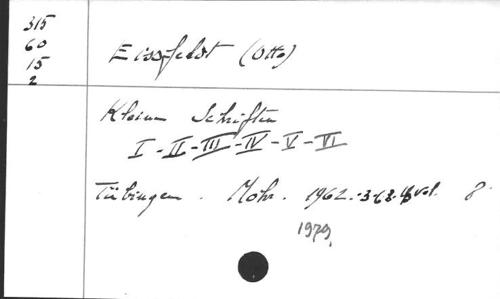 315
60
15
2
Eissfeldt (Otto)
Kleine Schriften
I-II-III-IV-V-VI
Tübingen. Mohr. 1962.-3-68. vol. 8
1979.